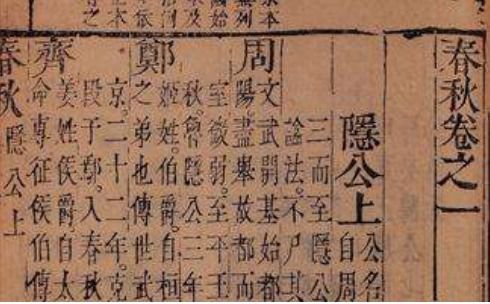 春秋卷之一
隱公上 公名
自周
三而至隱公
謚法。不尸其
周 文武開基始都
陽。盡舉故都而
室微弱。至平王
秋。魯隱公三年
鄭 姬姓。伯爵。自桓
之弟也傳世武
京。二十二年。克
段于鄢。入春秋
齊 姜姓侯爵。自太
命專征侯伯傳
春秋 隱公上